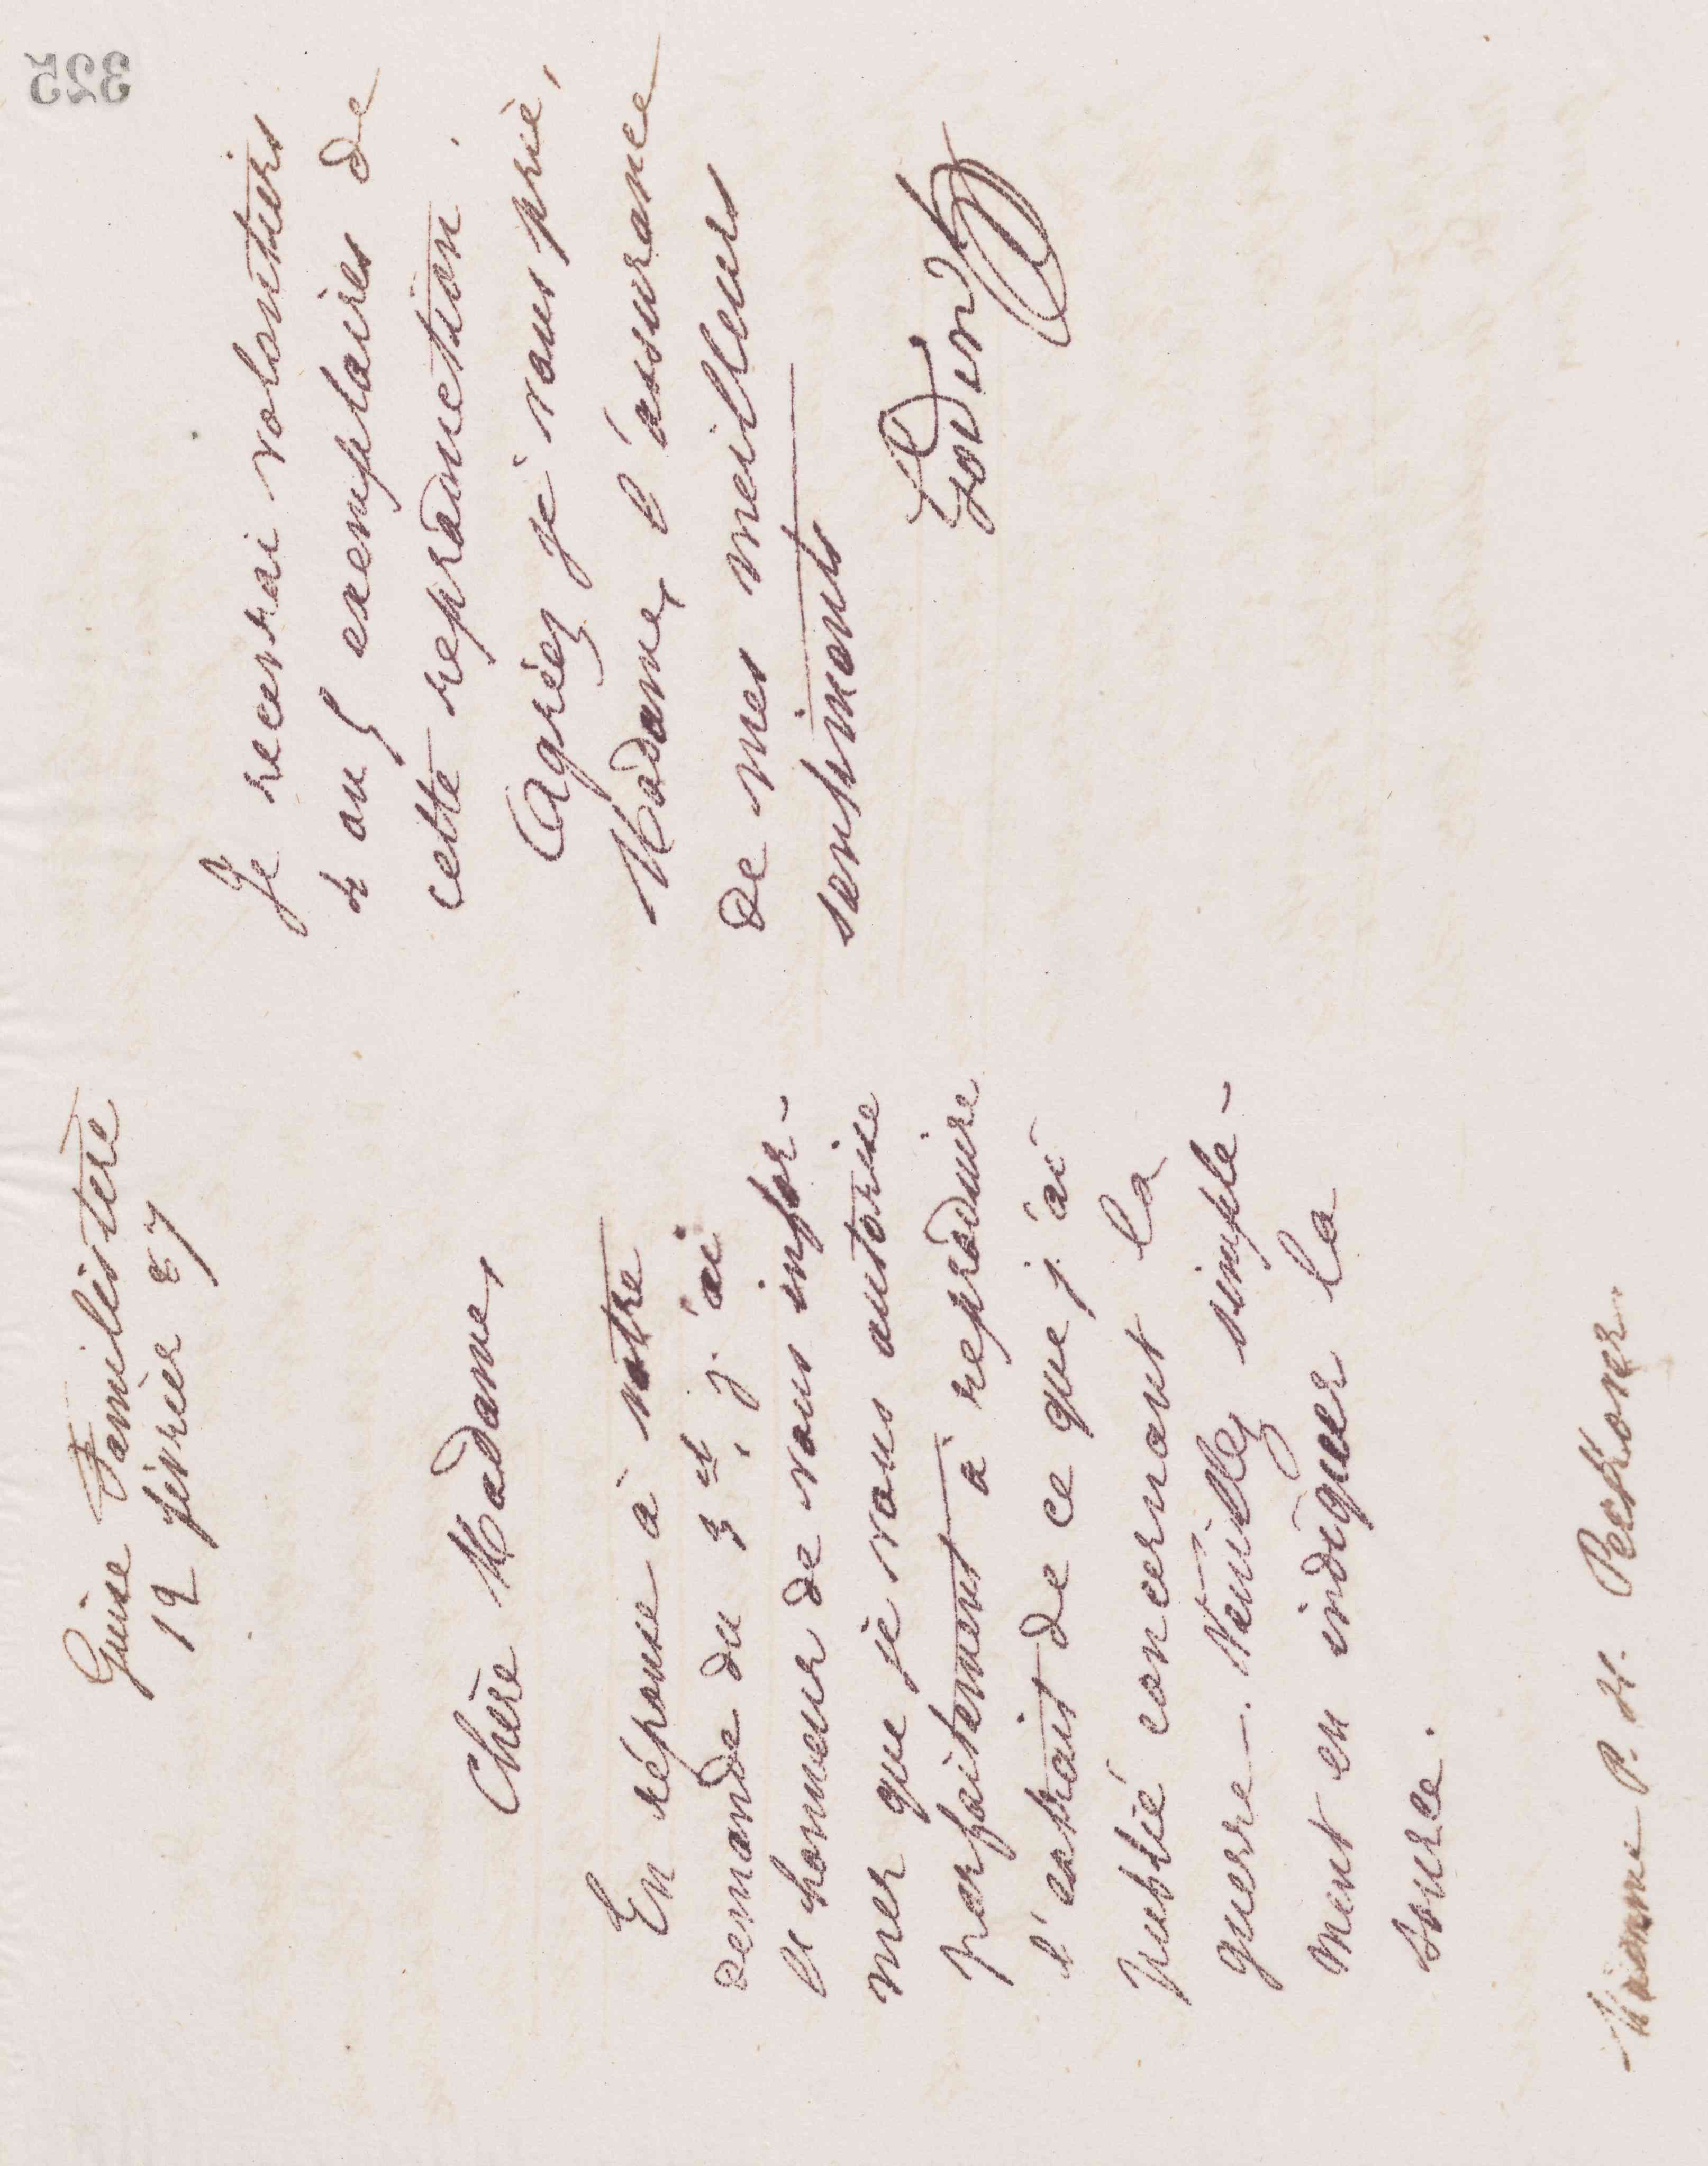 Guise Familistère
12 février 87
Chère Madame,
En réponse à votre
demande du 3 ct, j'ai
l'honneur de vous infor-
mer que je vous autorise
parfaitement à reproduire
l'extrait de ce que j'ai
publié concernant la
guerre. Veuillez simple-
ment en indiquer la
source.
Madame P. H. Peckover
Je recevrai volontiers
ou 5 exemplaires de
cette reproduction.
Agréez je vous prie,
Madame, l'assurance
de mes meilleurs
sentiments
Godin